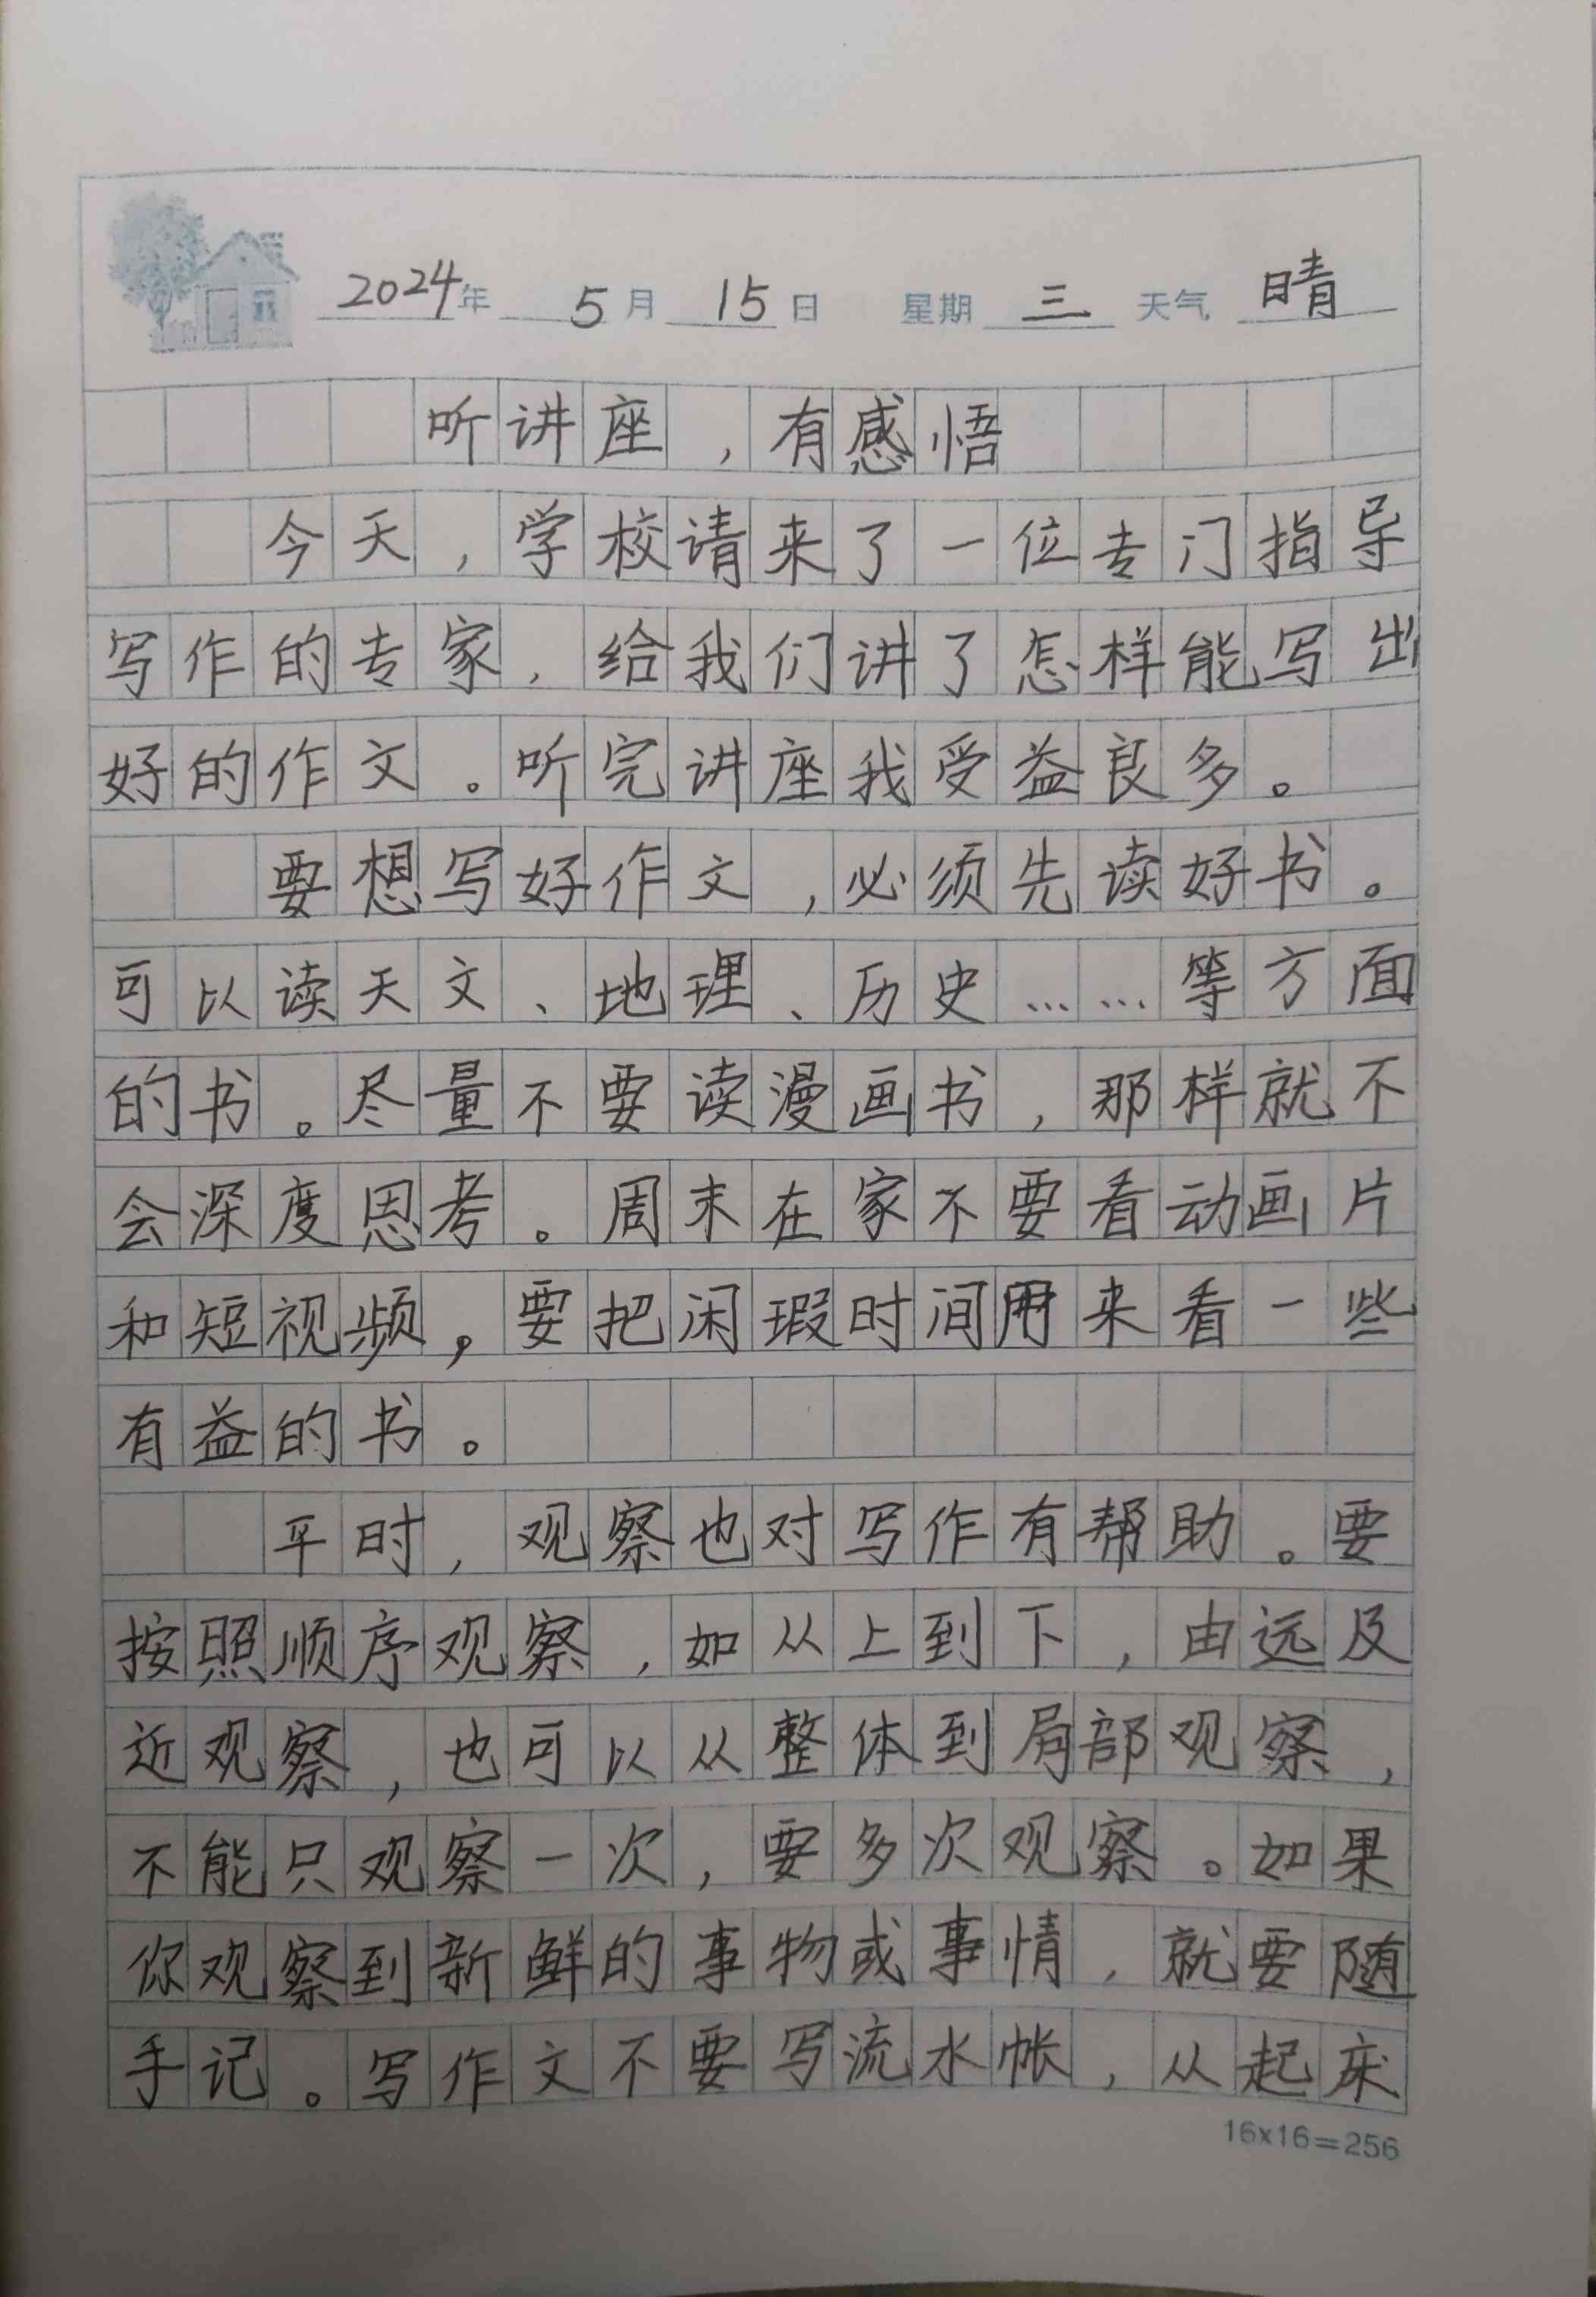 2024年 5月 15日 星期 三 天气 晴
听讲座，有感悟
今天，学校请来了一位专门指导
写作的专家，给我们讲了怎样能写出
好的作文。听完讲座我受益良多。
要想写好作文，必须先读好书。
可以读天文、地理、历史……等方面
的书。尽量不要读漫画书，那样就不
会深度思考。周末在家不要看动画片
和短视频，要把闲瑕时间用来看一些
有益的书。
平时，观察也对写作有帮助。要
按照顺序观察，如从上到下，由远及
近观察，也可以从整体到局部观察，
不能只观察一次，要多次观察。如果
你观察到新鲜的事物或事情，就要随
手记。写作文不要写流水帐，从起床
16×16=256